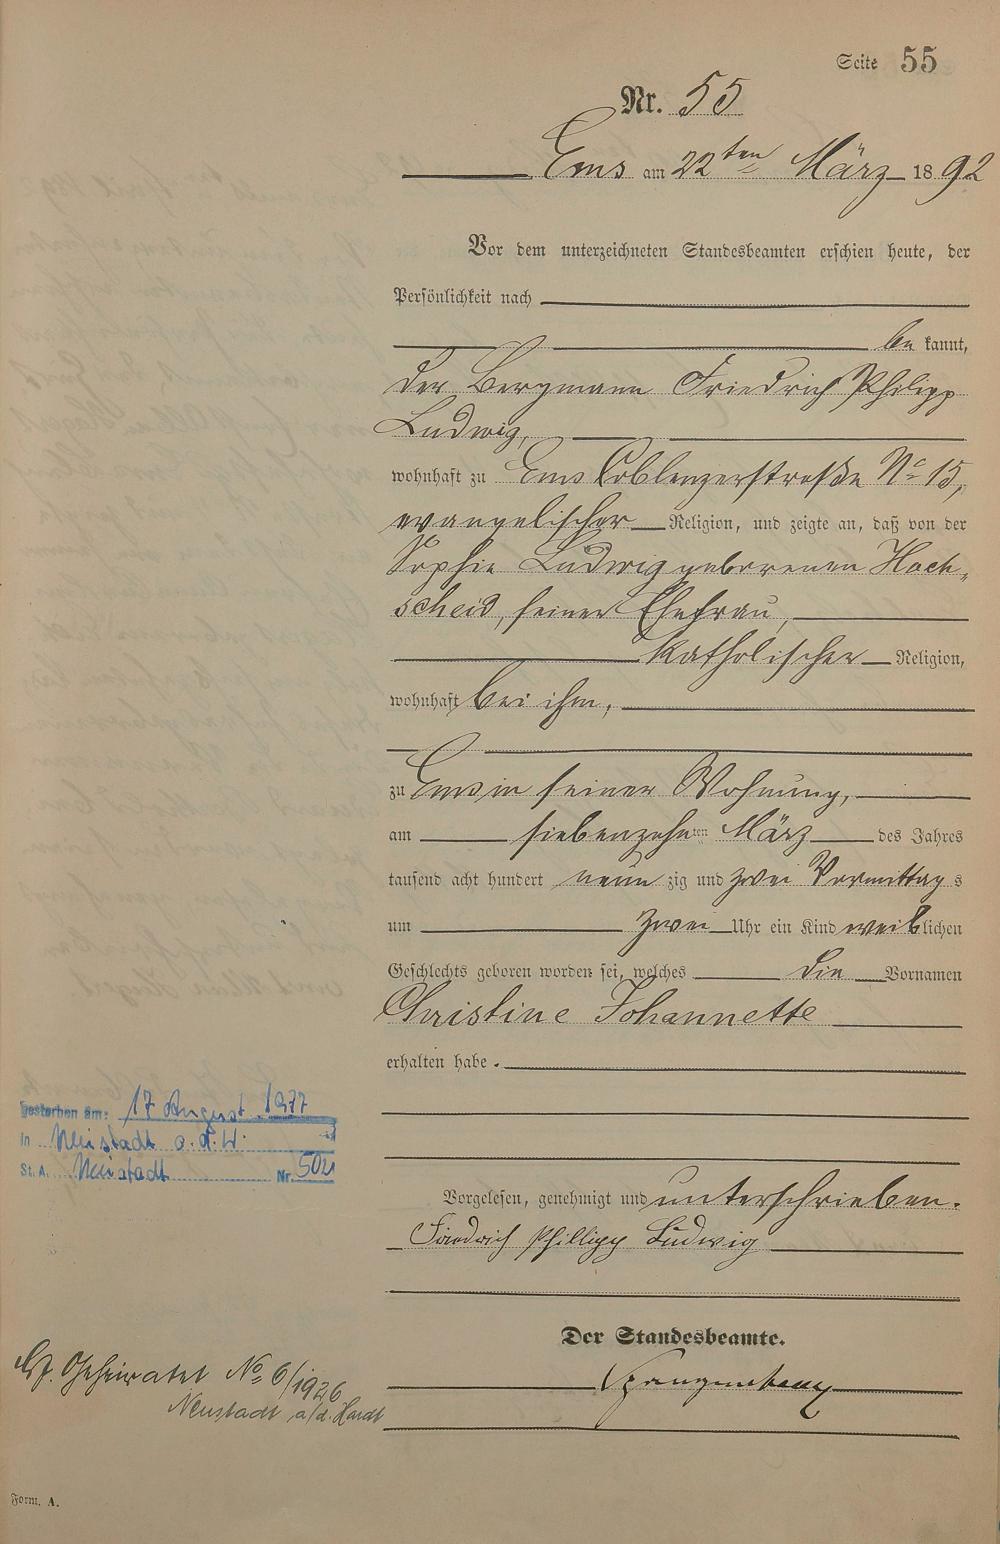 Seite 55
Nr. 55
Ems am 22ten März 1892
Vor dem unterzeichneten Standesbeamten erschien heute, der
Persönlichkeit nach
be kannt,
der Bergmann Friedrich Philipp
Ludwig,
wohnhaft zu Ems Coblenzerstraße No 15,
evangelischer Religion, und zeigte an, daß von der
Sophie Ludwig geborenen Hoch-
scheid, seiner Ehefrau,
katholischer Religion,
wohnhaft bei ihm,
zu Ems in seiner Wohnung,
am siebenzehnten März des Jahres
tausend acht hundert neunzig und zwei Vormittags
um zwei Uhr ein Kind weiblichen
Geschlechts geboren worden sei, welches die Vornamen
Christine Johannette
erhalten habe.
Gestorben am: 17 August 1977
in Neustadt a. d. W.
St. A. Neustadt Nr. 502
Vorgelesen, genehmigt und unterschrieben.
Friedrich Phillipp Ludwig
Der Standesbeamte.
Geheiratet No 6/1926
Neustadt a/d. Hardt
Form. A.